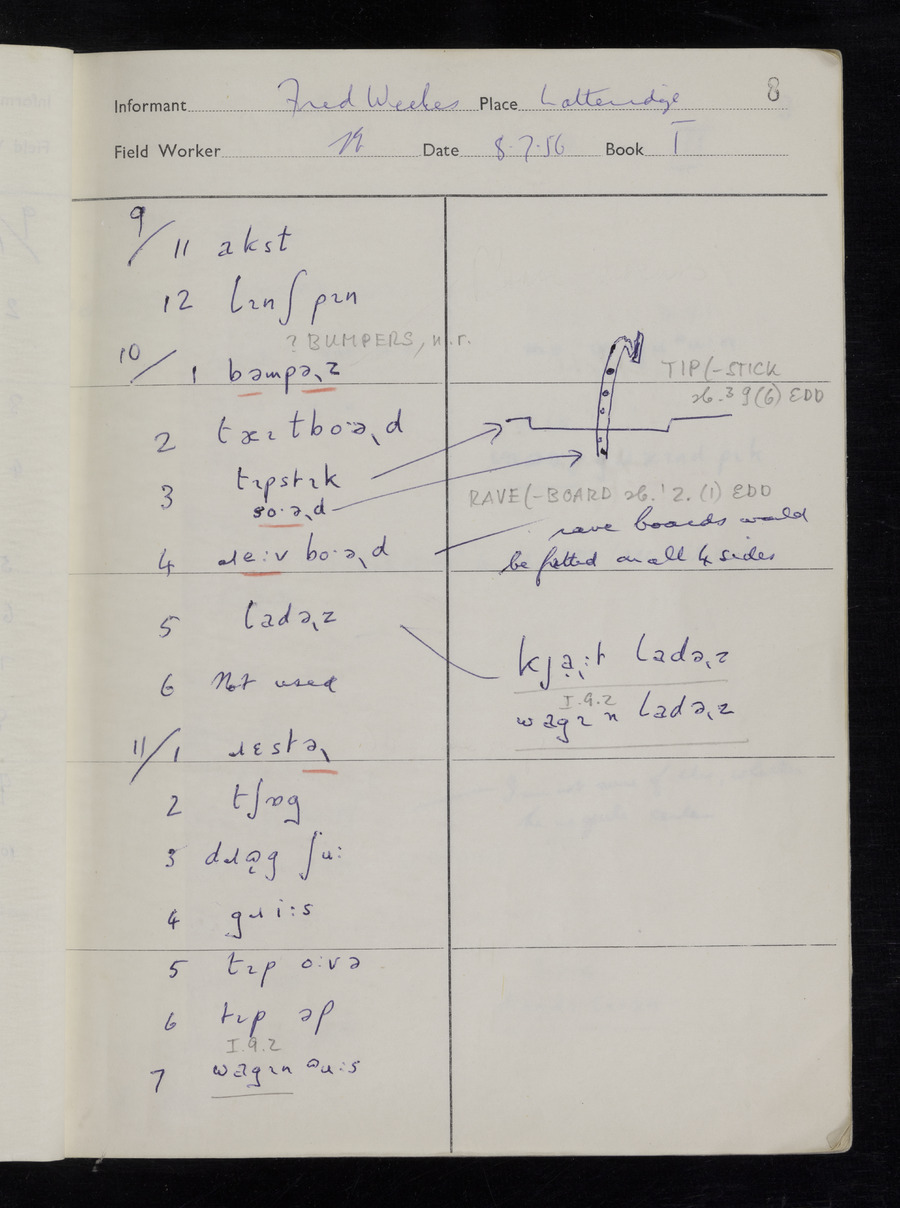 8
Informant Fred Weekes Place Latteridge
Field Worker Date 8.7.56 Book I
9/11 akst
12 lɪnʃ pɪn
? BUMPERS, n.r.
10/1 bəmpə˞z
TIP(-STICK
sb.³ 9(6) EDD
2 tæɪtbo·ə˞d
3 tɪpstɪk
RAVE(-BOARD sb.¹ 2.(1) EDD
rave boards would
4 ɹe:v bo·ə˞d be fitted on all 4 sides
5 ladə˞z
kɟa˞:t ladə˞z
6 Not used
I.9.2
wagɪn ladə˞z
11/1 ɹɛstə˞
2 tʃɒg
3 dɹag ʃu:
4 gɹi:s
5 tɪp o:və
6 tɪp əp
I.9.2
7 wagɪn əu:s